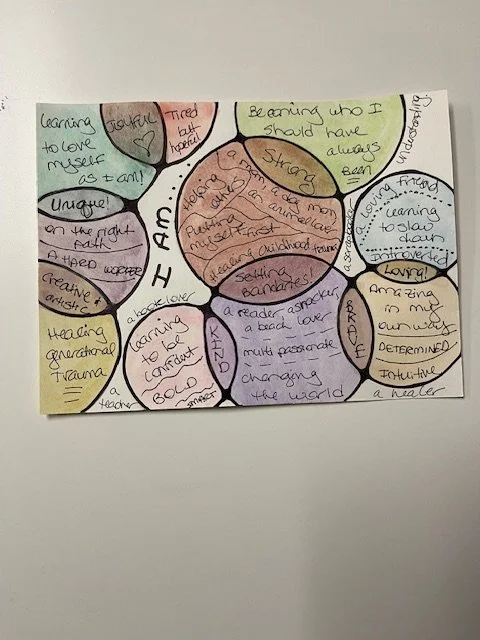 Learning
to love
myself
as I am!
Joyful
Tired
but
hopeful
Becoming who I
should have
always
Been
understanding
Unique!
on the right
path
A HARD worker
Creative +
artistic
Healing
generational
Trauma
I AM...
a mom, a dog mom
an animal lover
Helping
others
Putting
myself first
Healing childhood trauma
Strong
Setting
Boundaries!
a loving friend
Learning
to slow
down
Introverted
a scrapbooker
Loving!
Amazing
in my
own way
DETERMINED
Intuitive
a healer
BRAVE
a reader
a beach lover
multi passionate
changing
the world
KIND
a book lover
Learning
to be
confident
BOLD
SMART
a
teacher